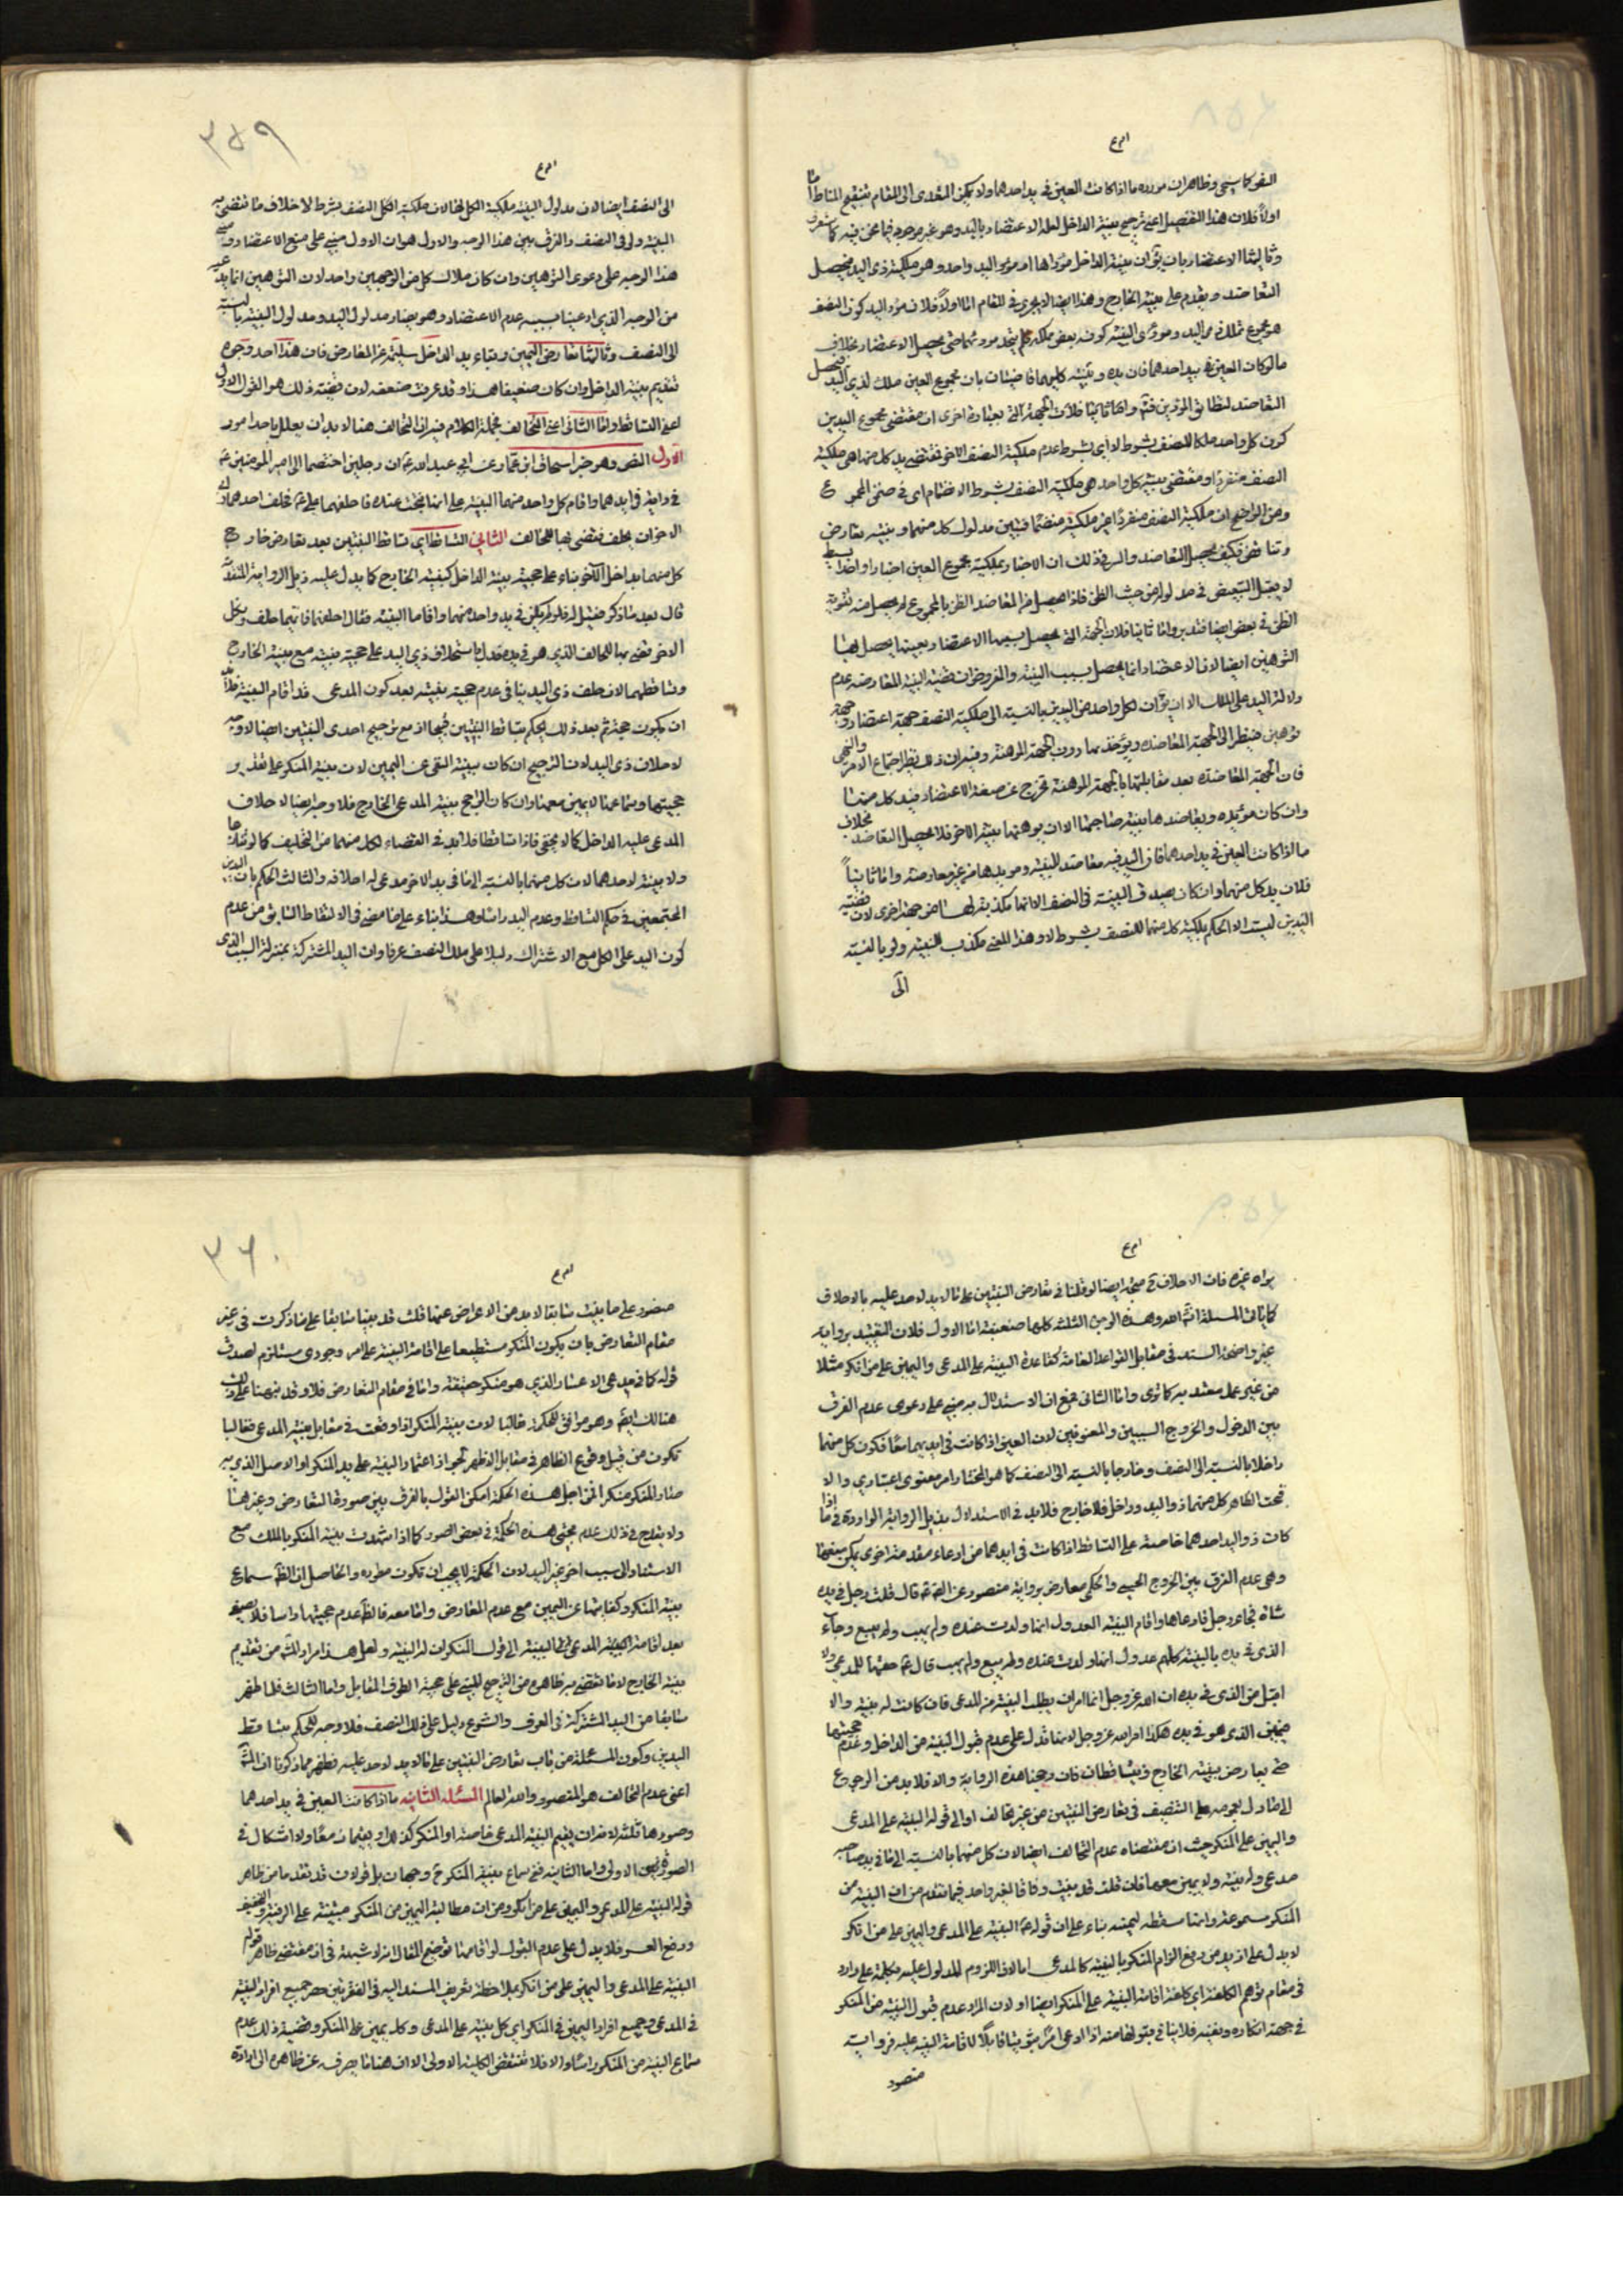 امرع
النفر كما سيجئ وظاهر ان مورده ما اذا كانت العين في يد احدهما ولا يمكن التعدى الى المقام بتنقيح المناط اما
اولا فلان هذا التفصيل اعنى ترجيح بينة الداخل لعله الاعتضاد باليد وهو غير موجود فيما نحن فيه كما ستعرف
وثالثها الاعتضاد بان يق ان بينة الداخل مؤداها مع مؤدى اليد واحد وهو ملكية ذى اليد فيحصل
التعاضد ويقدم على بينة الخارج وهذا ايضا لا يجرى في المقام اما اولا فلان مؤدى اليد كون النصف
هو مجموع تملك ذى اليد ومؤدى البينة كونه بعض ملكه فلم يتحد موردهما حتى يحصل الاعتضاد بخلاف
ما لو كانت العين في يد احدهما فان يده وبينته كليهما قاضيتان بان مجموع العين ملك لذى اليد فيحصل
التعاضد لتطابق المؤديين فتم واما ثانيا فلان الجهة التى بعبارة اخرى ان مقتضى مجموع اليدين
كون كل واحد مالكا للنصف بشرط لا اى بشرط عدم ملكية النصف الآخر فمقتضى يد كل منهما هى ملكية
النصف منفردا ومقتضى بينة كل واحد هى ملكية النصف بشرط الانضمام اى في ضمن المجموع
ومن الواضح ان ملكية النصف منفردا غير ملكيته منضما فبين مدلول كل منهما وبينته تعارض
وتناقض فكيف يحصل التعاضد والسر في ذلك ان الاخبار بملكية مجموع العين اخبار واحد بسيط
لا يقبل التبعيض في مدلوله من حيث الظن فاذا لم يحصل من التعاضد الظن بالمجموع لم يحصل منه تقوية
الظن في بعض ايضا فتدبر واما ثانيا فلان الجهة التى يحصل بسببها الاعتضاد بعينها يحصل بها
التوهين ايضا لان الاعتضاد انما يحصل بسبب البينة والمفروض ان قضية البينة المعارضه عدم
دلالة اليد على الملك الا ان يق ان لكل واحد من اليدين بالنسبة الى ملكية النصف جهة اعتضاد وجهة
توهين فينظر الى الجهة المعاضده ويؤخذ بها دون الجهة الموهنة وفيه ان ذلك نظير اجتماع الامر والنهى
فان الجهة المعاضدة بعد مقابلتها بالجهة الموهنة تخرج عن صفة الاعتضاد فيد كل منهما
وان كان مؤيده ويعاضدها بينة صاحبها الا ان يوهنها بينة الآخر فلا يحصل التعاضد بخلاف
ما اذا كانت العين في يد احدهما فان اليد فيه معاضد للبينة ومؤيدها من غير معارضة واما ثانيا
فلان يد كل منهما وان كان يصدق البينة في النصف الا انها مكذبة لها من جهة اخرى لان قضية
اليدين ليست الا الحكم بملكية كل منهما للنصف بشرط لا وهذا المعنى مكذب للبينة ولو بالنسبة
الى
٣٥٩
امرع
الى النصف ايضا لان مدلول البينة ملكية الكل لا ملكية النصف بشرط لا خلاف ما تقتضى به
البينة ولو في النصف والفرق بين هذا الوجه والاول هو ان الاول مبنى على منع الاعتضاد ومبنى
هذا الوجه على دعوى التوهين وان كان ملاك كل من الوجهين واحد لان التوهين انما يجئ
من الوجه الذى ادعينا بسببه عدم الاعتضاد وهو تضاد مدلول اليد ومدلول البينة بالنسبة
الى النصف وثالثها تعارض البينتين وبقاء يد الداخل سليمة عن المعارض فان هذا احد وجوه
تقديم بينة الداخل وان كان ضعيفا هذا وقد عرفت ضعفه لان قضية ذلك هو القول الاول
اعنى التساقط واما الثانى اعنى التحالف فجملة الكلام فيه ان التحالف هنا لا بد ان يعلل باحد امور
الاول النص وهو خبر اسحاق ابن عمار عن ابى عبد الله ع ان رجلين اختصما الى امير المؤمنين ع
في دابة في ايديهما واقام كل واحد منهما البينة على انها نتجت عنده فاحلفهما على ع فحلف احدهما وابى
الآخر ان يحلف فقضى بها للحالف الثانى التساقط اى تساقط البينتين بعد تعارض خارج
كل منهما بداخل الآخر بناء على حجية بينة الداخل كبينة الخارج كما يدل عليه ذيل الرواية المتقدمة
قال بعد ما ذكر فقيل له فلو لم يكن في يد واحد منهما واقاما البينة فقال احلفهما فايهما حلف ونكل
الآخر قضى بها للحالف الذى هو في يده فدل باستحلاف ذى اليد على حجية بينته مع بينة الخارج
وتساقطهما لان حلف ذى اليد ينافى عدم حجية بينته بعد كون المدعى قد اقام البينة فلا بد
ان يكون حجة ثم بعد ذلك يحكم بتساقط البينتين فيهما اذ مع ترجيح احدى البينتين ايضا لا وجه
لاحلاف ذى اليد لان الترجيح ان كان ببينة النفى عن اليمين لان بينة المنكر على تقدير
حجيتها وسماعها لا يمين معها وان كان الترجيح ببينة المدعى الخارج فلا وجه ايضا لاحلاف
المدعى عليه الداخل كما لا يخفى فاذا تساقطا فلا بد في القضاء لكل منهما من التحليف كما لو تداعيا
ولا بينة لاحدهما لان كل منهما بالنسبة الى ما في يد الآخر مدعى له احلافه والثالث الحكم بان اليدين
المجتمعين في حكم التساقط وعدم اليد راسا وهذا بناء على ما مضى في الالتقاط السابق من عدم
كون اليد على الكل مع الاشتراك دليلا على ملك النصف عرفا وان اليد المشتركة بمنزلة السبب الذى
امرع
يراه غيره فان الاحلاف ح متجه ايضا لو قلنا في تعارض البينتين على ما لا يد لاحد عليه بالاحلاف
كما يأتى المسئلة انشاء الله وهذه الوجوه الثلثة كلها ضعيفة اما الاول فلان التقييد برواية
غير واضحة السند في مقابل القواعد العامة كقاعدة البينة على المدعى واليمين على من انكر مثلا
من غير عمل معتد به كما ترى واما الثانى فمع ان الاستدلال به مبنى على دعوى عدم الفرق
بين الدخول والخروج الحسيين والمعنويين لان العين اذا كانت في ايديهما معا فكون كل منهما
داخلا بالنسبة الى النصف وخارجا بالنسبة الى النصف كما هو المختار امر معنوى اعتبارى والا
تحت الظاهر كل منهما ذو اليد وداخل فلا خارج فلا بد في الاستدلال بذيل الرواية الواردة في ما اذا
كان ذو اليد احدهما خاصة على التساقط اذا كانت في ايديهما من ادعاء مقدمة اخرى يمكن منعها
وهى عدم الفرق بين الخروج الحسى والحكمى معارض برواية منصور عن الصادق ع قال قلت رجل في يده
شاة فجاء رجل فادعاها واقام البينة العدول انها ولدت عنده ولم يهب ولم يبيع وجاء
الذى في يده بالبينة كلهم عدول انها ولدت عنده ولم يبيع ولم يهب قال ع حقها للمدعى ولا
اقبل من الذى في يده ان الله عز وجل انما امر ان يطلب البينة من المدعى فان كانت له بينة والا
فيمين الذى هو في يده هكذا امر الله عز وجل لانها تدل على عدم قبول البينة من الداخل وعدم حجيتها
حتى يعارض ببينة الخارج ويتساقطان فان رجحنا هذه الرواية والا فلا بد من الرجوع
الى ما دل بعمومه على التنصيف في تعارض البينتين من غير تحالف او الى قوله البينة على المدعى
واليمين على المنكر حيث ان مقتضاه عدم التحالف ايضا لان كل منهما بالنسبة الى ما في يد صاحبه
مدعى وله بينة ولا يمين معها فان قلت قد بينت وفاقا لغير واحد فيما تقدم من ان البينة من
المنكر مسموعة وانها مسقطه ليمينه بناء على ان قوله ع البينة على المدعى واليمين على من انكر
لا يدل على ازيد من رفع الزام المنكر بالبينة كالمدعى اما لان اللزوم المدلول عليه بكلمة على وارد
في مقام توهم الكلفة اى كلفة اقامة البينة على المنكر ايضا او لان المراد عدم قبول البينة من المنكر
في جهة انكاره ونفيه فلا ينافى قبولها منه اذا ادعى امرا ثبوتيا قابلا لاقامة البينة عليه فرواية
منصور
٣٦٠
امرع
منصور على ما بينت سابقا لا بد من الاعراض عنها قلت قد بينا سابقا على ما ذكرت في غير
مقام التعارض بان يكون المنكر مستطيعا على اقامة البينة على امر وجودى مستلزم لصدق
قوله كما في مدعى الاعسار الذى هو منكر حقيقة واما في مقام التعارض فلا وقد نبهنا على ذلك
هنالك ايضا وهو موافق للحكمة غالبا لان بينة المنكر اذا وقعت في مقابل بينة المدعى فغالبا
تكون من قبيل وقوع الظاهر في مقابل الاظهر لجواز اعتماد البينة على يد المنكر او الاصل الذى به
صار المنكر منكرا فمن اجل هذه الحكمة امكن القول بالفرق بين صورة التعارض وغيرها
ولا يقدح في ذلك عدم مجئ هذه الحكمة في بعض الصور كما اذا شهدت بينة المنكر بالملك مع
الاستناد الى سبب آخر غير اليد لان الحكمة لا يجب ان تكون مطرده والحاصل ان الظ سماع
بينة المنكر وكفايتها عن اليمين مع عدم المعارض واما معه فالظ عدم حجيتها راسا فلا يصغى
بعد اقامة البينة المدعى البينة الى قول المنكر ان له البينة ولعل هذا مراد المش من تقديم
بينة الخارج لا ما يقتضيه ظاهره من الترجيح المبنى على حجية الطرف المقابل واما الثالث فلما ظهر
سابقا من اليد المشتركة في العرف والشرع دليل على ملك النصف فلا وجه للحكم بتساقط
اليدين وكون المسئلة من باب تعارض البينتين على ما لا يد لاحد عليه فظهر مما ذكرنا ان المش
اعنى عدم التحالف هو المنصور والله العالم المسئلة الثانيه ما اذا كانت العين في يد احدهما
وصورها ثلثة لانه اما ان يقيم البينة المدعى خاصة او المنكر كذلك او يقيمان معا ولا اشكال في
الصورة الاولى واما الثانية ففى سماع بينة المنكر ح وجهان بل قولان قد تقدما من ظاهر
قوله البينة على المدعى واليمين على من انكر ومن ان مطالبة اليمين من المنكر مبنية على الرفق والتخفيف
ورفع العسر فلا يدل على عدم القبول لو اقامها توضيح المقال انه لا شبهة في ان مقتضى ظاهر قوله
البينة على المدعى واليمين على من انكر بملاحظة تعريف المسند اليه في الفقرتين حصر جميع افراد البينة
في المدعى وجميع افراد اليمين في المنكر اى كل بينة على المدعى وكل يمين على المنكر وقضية ذلك عدم
سماع البينة من المنكر راسا والا فلا تنتقض الكلية الاولى الا ان هنا ما يصرفه عن ظاهره الى ارادة